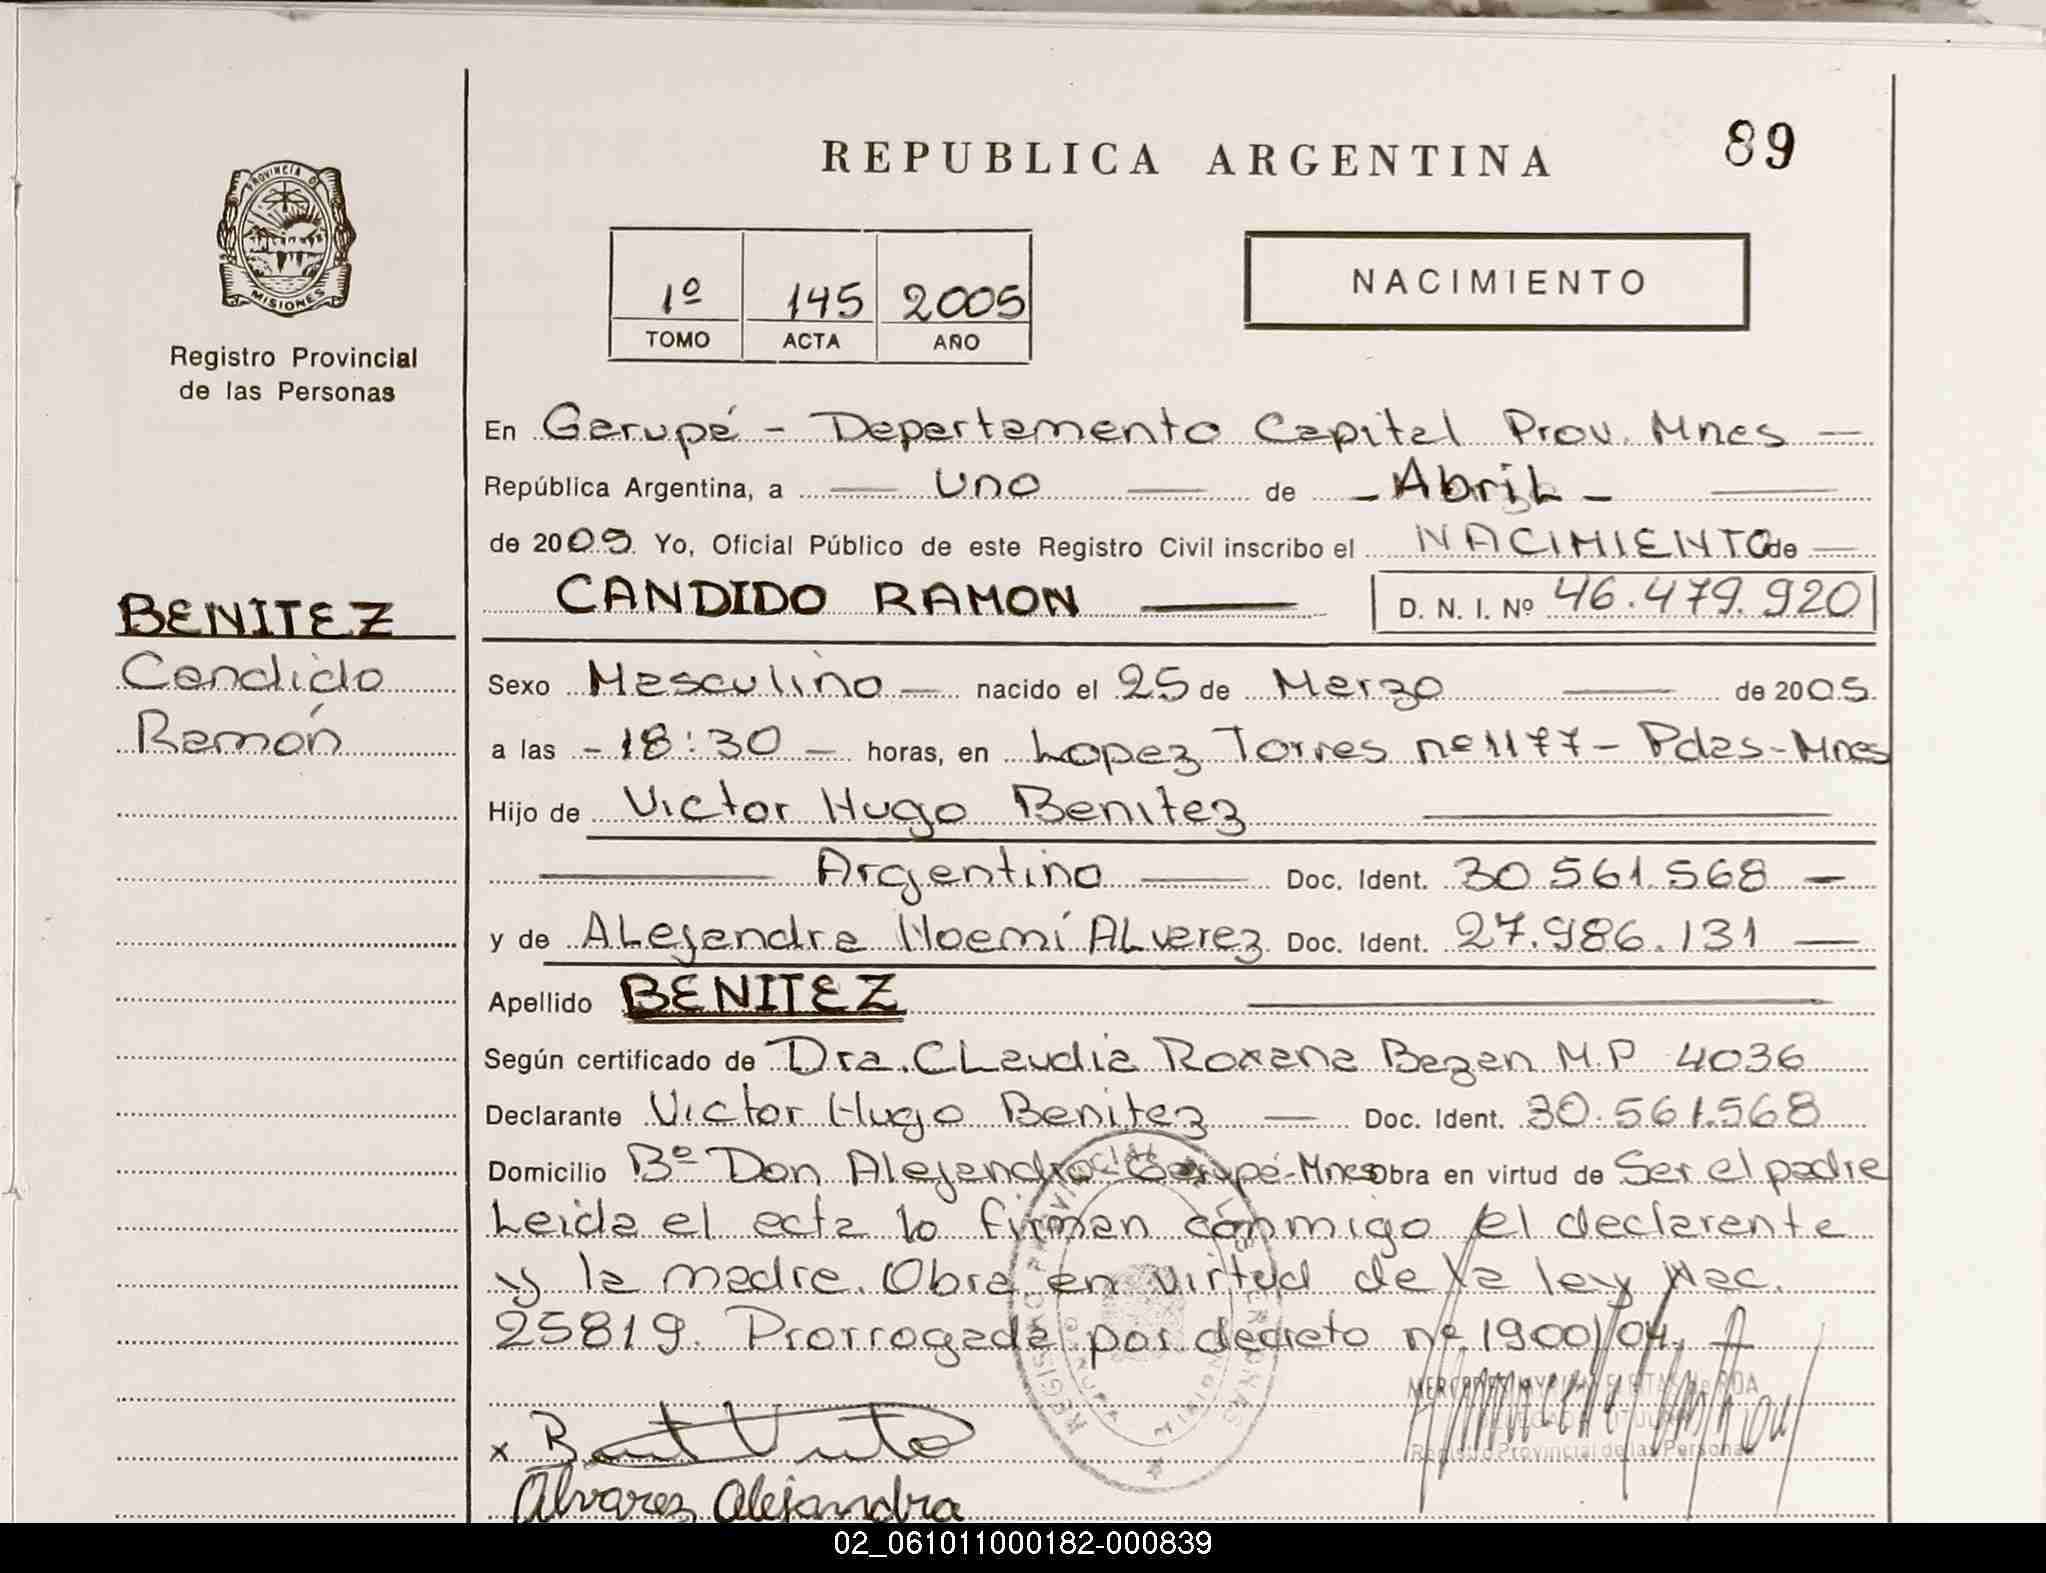 REPUBLICA ARGENTINA
89
PROVINCIA DE
MISIONES
Registro Provincial
de las Personas
1º 145 2005
TOMO ACTA AÑO
NACIMIENTO
En Garupá - Departamento Capital Prov. Mnes
República Argentina, a uno de Abril
de 2005 Yo, Oficial Público de este Registro Civil inscribo el NACIMIENTO de
CANDIDO RAMON D. N. I. Nº 46.479.920
BENITEZ
Candido
Ramón
Sexo Masculino nacido el 25 de Marzo de 2005
a las 18:30 horas, en Lopez Torres nº 1177 - Pdas - Mnes
Hijo de Victor Hugo Benitez
Argentino Doc. Ident. 30.561.568
y de Alejandra Noemí Alvarez Doc. Ident. 27.986.131
Apellido BENITEZ
Según certificado de Dra. Claudia Roxana Bazan M.P 4036
Declarante Victor Hugo Benitez Doc. Ident. 30.561.568
Domicilio Bº Don Alejandro Garupá - Mnes Obra en virtud de Ser el padre
Leida el acta lo firman conmigo el declarante
y la madre. Obra en virtud de la ley Nac.
25819. Prorrogada por decreto nº 1900/04.
REGISTRO PROVINCIAL DE LAS PERSONAS
Registro Provincial de las Personas
x
Alvarez Alejandra
02_061011000182-000839